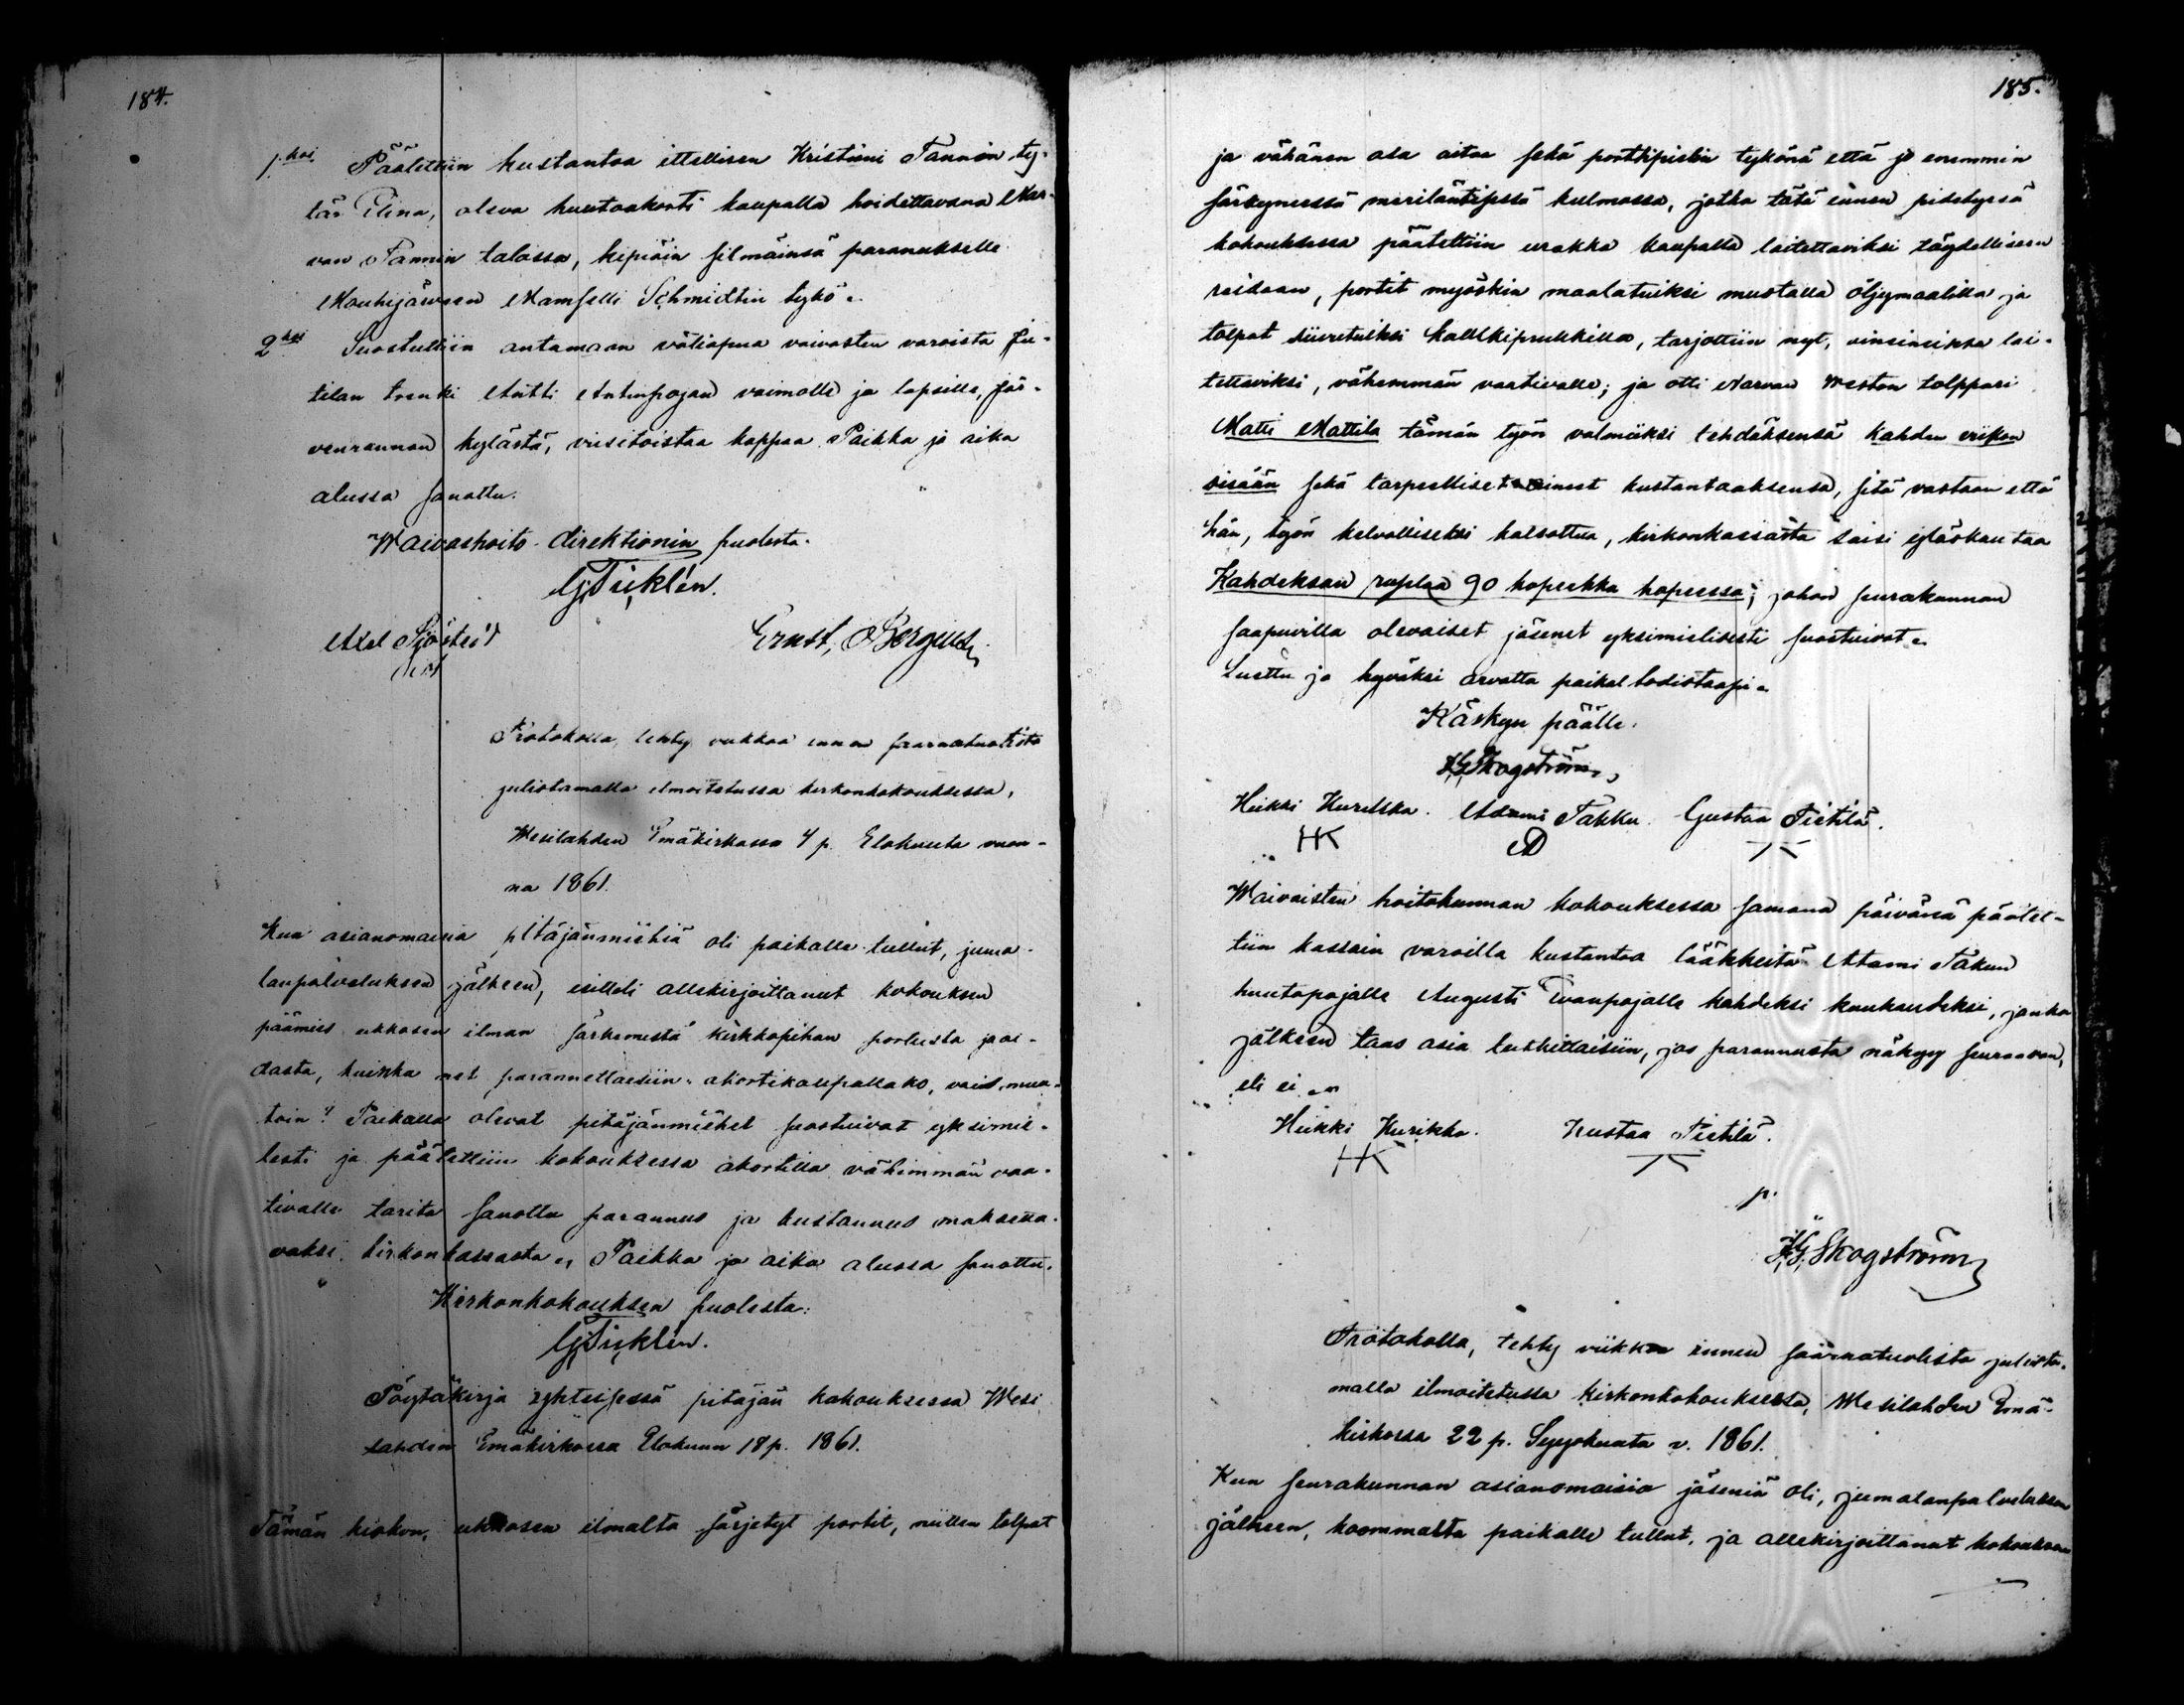 184.
1.ksi Päätettiin kustantaa ittellisen Kristiini Tannin ty-
tär Elina, oleva huutoakorti kaupalla hoidettavana Nar-
van Tannin talossa, kipiäin silmäinsä paranukselle
Mouhijärveen Mamselli Schmidtin tykö.
2ksi Suostuttiin antamaan väliapua vaivasten varoista
tilan trenki Antti Antinpojan vaimolle ja lapsille, Jär-
venrannan kylästä, viisitoistaa kappaa. Paikka ja aika
alussa sanottu.
Waivashoito-direktionin puolesta.
G. Ticklén.
Axel Ernst, Bergius
Protokolla, tehty viikkoa ennen saarnatuolista
juliotamalla ilmoitetussa kirkonkokouksessa,
Wesilahden Emäkirkossa 4 p. Elokuuta vuon-
na 1861.
Kun asianomaisia pitäjänmiehiä oli paikalle tullut, juma-
lanpalveluksen jälkeen, esitteli allekirjoittanut kokouksen
päämies ukkosen ilman särkemestä kirkkopihan portista ja ai-
dasta, kuinka net parannettaisiin, akortikaupallako, vais muu-
toin? Paikalla olevat pitäjänmiehet suostuivat yksimie-
lesti ja päätettiin kokouksessa akortilla vähimmän vaa-
tivalle tarita sanottu parannus ja kustannus maksetta-
vaksi kirkonkassasta. Paikka ja aika alussa sanottu.
Kirkonkokouksen puolesta:
G. Ticklén.
Pöytäkirja yhteisessä pitäjän kokouksessa Wesi
lahden Emäkirkossa Elokuun 18 p. 1861.
Tämän kirkon, ukkosen ilmalta särjetyt portit, niitten tolpat
185.
ja vähänen osa aitaa sekä porttipielin tykönä että jo enemmin
särkyneessä meriläntisessä kulmassa, jotka tätä ennen pidetyssä
kokouksessa päätettiin urakka kaupalla laitettaviksi täydelliseen
reidaan, portit myöskin maalatuiksi mustalla öljymaalilla ja
tolpat siivetuiksi kalkkiprukkilla, tarjottiin nyt, ainsineikka lai-
tettaviksi, vähemmän vaativalle; ja otti Narvan Weston tolppari
Matti Mattila tämän työn valmiiksi tehdäksensä kahden viikon
sisään sekä tarpeelliset aineet kustantaaksensa, sitä vastaan että
hän, työn kelvolliseksi katsottua, kirkonkassasta saisi ylöskantaa
Kahdeksan ruplaa 90 kopeekka hopeessa; johon seurakunnan
saapuvilla olevaiset jäsenet yksimielisesti suostuivat.
Luettu ja hyväksi arvattu paikal todistaapi.
Käskyn päälle.
K.G. Skogström
Heikki Kurikka. Adami Takku. Gustaa Pietilä.
HK AD
Waivaisten hoitokunnan kokouksessa samana päivänä päätet-
tiin kassain varoilla kustantaa lääkkeitä Atami Takun
huutopojalle Augusti Iivanpojalle kahdeksi kuukaudeksi, jonka
jälkeen taas asia tutkittaisiin, jos parannusta näkyy seuraavan,
eli ei.
Heikki Kurikka. Kustaa Pietilä.
HK
p.
K.G. Skogström
Protokolla, tehty viikkoa ennen saarnatuolista juliota-
malla ilmoitetussa kirkonkokouksessa, Wesilahden Emä-
kirkossa 22 p. Syyskuuta v. 1861.
Kun seurakunnan asianomaisia jäseniä oli, jumalanpalveluksen
jälkeen, koommalta paikalle tullut, ja allekirjoittanut kokouksen